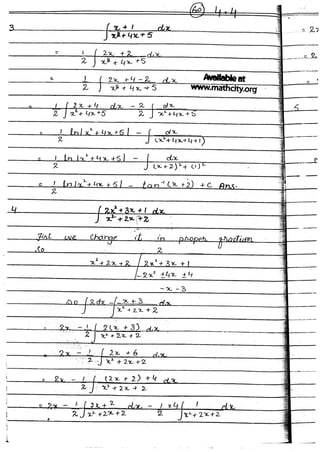 60 4.4
3 ∫ x + 1 / x² + 4x + 5 dx
= 1/2 ∫ 2x + 2 / x² + 4x + 5 dx
= 1/2 ∫ 2x + 4 - 2 / x² + 4x + 5 dx
Available at
www.mathcity.org
= 1/2 ∫ 2x + 4 / x² + 4x + 5 dx - 2/2 ∫ dx / x² + 4x + 5
= 1/2 ln |x² + 4x + 5| - ∫ dx / (x² + 4x + 4 + 1)
= 1/2 ln |x² + 4x + 5| - ∫ dx / (x + 2)² + (1)²
= 1/2 ln |x² + 4x + 5| - tan⁻¹(x + 2) + C Ans.
4 ∫ 2x² + 3x + 1 / x² + 2x + 2 dx
First we Change it in proper
So 2
x² + 2x + 2 / 2x² + 3x + 1
- 2x² ± 4x ± 4
- x - 3
So ∫ 2 dx - ∫ x + 3 / x² + 2x + 2 dx
= 2x - 1/2 ∫ 2(x + 3) / x² + 2x + 2 dx
= 2x - 1/2 ∫ 2x + 6 / x² + 2x + 2 dx
= 2x - 1/2 ∫ (2x + 2) + 4 / x² + 2x + 2 dx
= 2x - 1/2 ∫ 2x + 2 / x² + 2x + 2 dx - 1/2 x 4 ∫ 1 / x² + 2x + 2 dx